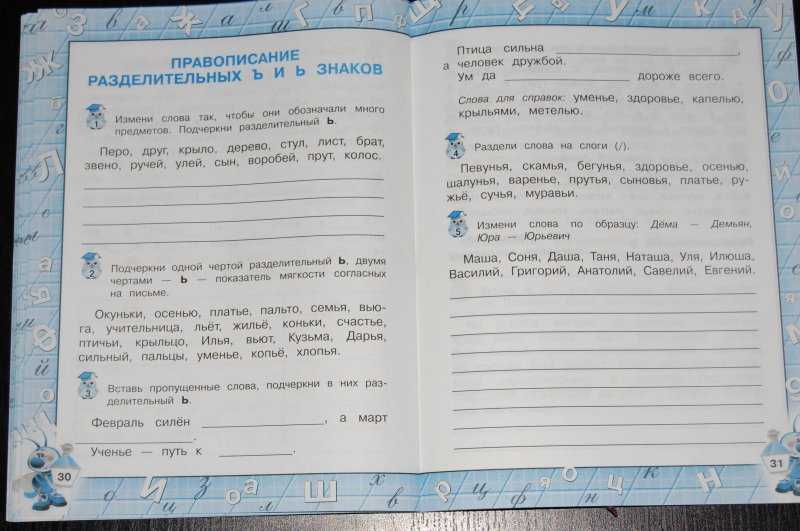 ПРАВОПИСАНИЕ
РАЗДЕЛИТЕЛЬНЫХ Ъ И Ь ЗНАКОВ
1
Измени слова так, чтобы они обозначали много
предметов. Подчеркни разделительный Ь.
Перо, друг, крыло, дерево, стул, лист, брат,
звено, ручей, улей, сын, воробей, прут, колос.
2
Подчеркни одной чертой разделительный Ь, двумя
чертами — Ь — показатель мягкости согласных
на письме.
Окуньки, осенью, платье, пальто, семья, вью-
га, учительница, льёт, жильё, коньки, счастье,
птичьи, крыльцо, Илья, вьют, Кузьма, Дарья,
сильный, пальцы, уменье, копьё, хлопья.
3
Вставь пропущенные слова, подчеркни в них раз-
делительный Ь.
Февраль силён ____________, а март
____________.
Ученье — путь к ____________.
30
Птица сильна ____________,
а человек дружбой.
Ум да ____________ дороже всего.
Слова для справок: уменье, здоровье, капелью,
крыльями, метелью.
4
Раздели слова на слоги (/).
Певунья, скамья, бегунья, здоровье, осенью,
шалунья, варенье, прутья, сыновья, платье, ру-
жьё, сучья, муравьи.
5
Измени слова по образцу: Дёма — Демьян,
Юра — Юрьевич
Маша, Соня, Даша, Таня, Наташа, Уля, Илюша,
Василий, Григорий, Анатолий, Савелий, Евгений.
31